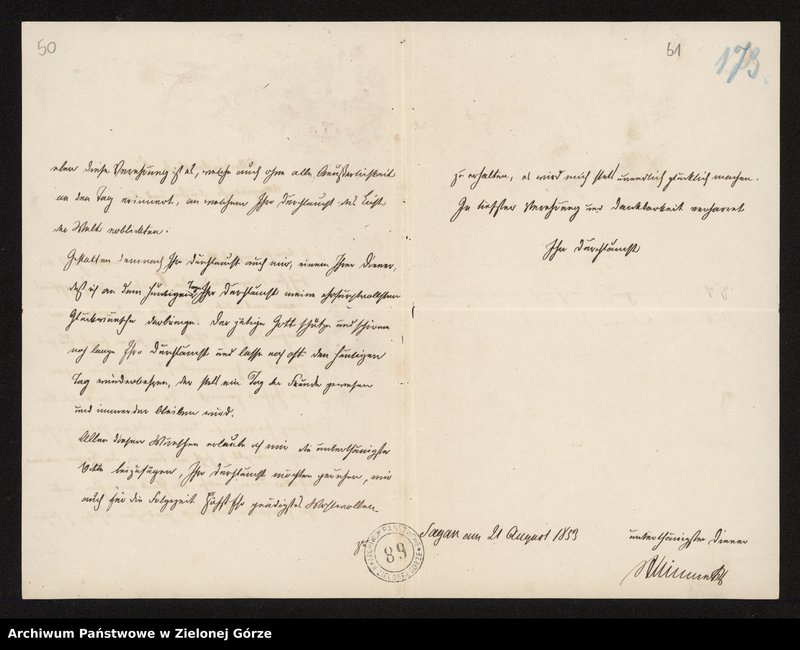 50
eben diese Verehrung ist es, welche auch ohne alle Aeußerlichkeit
an den Tag erinnert, an welchem Ihro Durchlaucht das Licht
der Welt erblickten.
Gestatten demnach Ihro Durchlaucht auch mir, einem Ihrer Diener,
daß ich an dem heutigen Tage Ihro Durchlaucht meine ehrfurchtvollsten
Glückwünsche darbringe. Der gütige Gott schütze und schirme
noch lange Ihro Durchlaucht und lasse noch oft den heutigen
Tag wiederkehren, der stets ein Tag der Freude gewesen
und immerdar bleiben wird.
Allen diesen Wünschen erlaube ich mir die unterthänigste
Bitte beizufügen, Ihro Durchlaucht möchten geruhen, mir
auch für die Folgezeit Höchst Ihr gnädigstes Wohlwollen
51
173.
zu erhalten, es wird mich stets unendlich glücklich machen.
In tiefster Verehrung und Dankbarkeit verharret
Ihro Durchlaucht
Sagan am 21 August 1853
unterthänigster Diener
ARCHIWUM PAŃSTWOWE
89
Archiwum Państwowe w Zielonej Górze